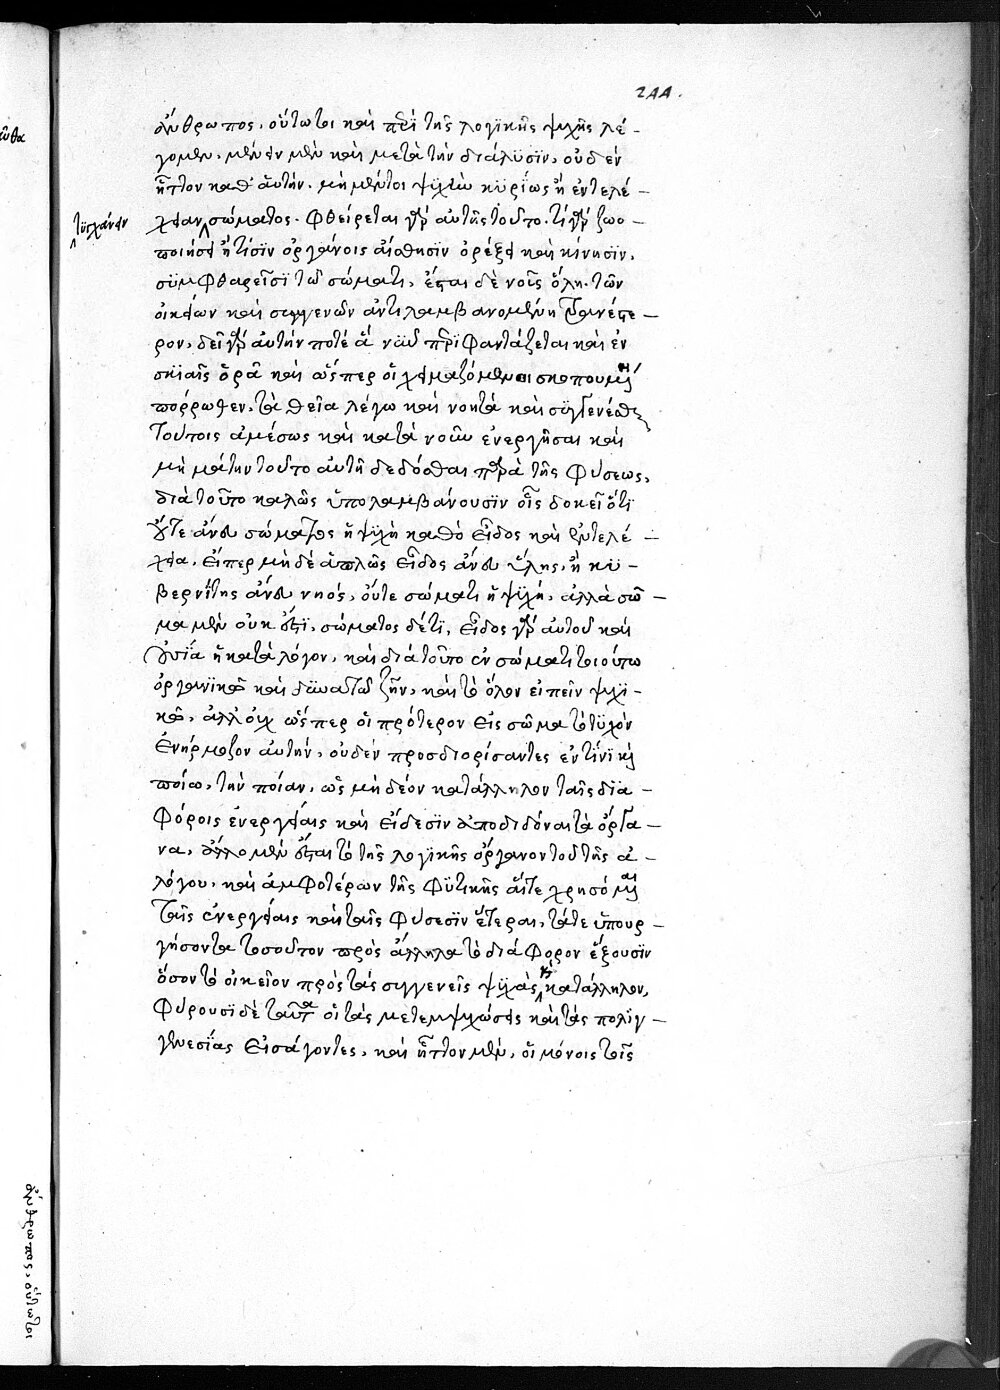 244.
ἄνθρωπος, οὕτωτοι καὶ περὶ τῆς λογικῆς ψυχῆς λέ-
γομεν, μένειν μὲν καὶ μετὰ τὴν διάλυσϊν, οὐδὲν
ἧττον καθ' ἁυτήν. μὴ μέντοι ψϋχὴν κϋρίως ἢ ἐντελέ-
χειαν σώματος. φθείρεται γὰρ ἀυτῆς τοῦτο. τί γὰρ ζωο-
τϋγχάνειν
ποιήσει ἢ τίσϊν ὀργάνοις ἀίσθησϊν ὀρέξει καὶ κίνησϊν,
σϋμφθαρεῖσϊ τῶ σώματι, ἔσται δὲ νοῦς ὅλη. τῶν
οἰκείων καὶ συγγενῶν ἀντιλαμβανομένη τρανέστε-
ρον, δεῖ γὰρ ἀυτήν ποτέ ἃ νῦν περὶ φαντάζεται καὶ ἐν
σκϊαῖς ὁρᾶ καὶ ὥσπερ οἱ χειμαζόμενοι σκοπουμένη
πόρρωθεν, τὰ θεῖα λέγω καὶ νοητὰ καὶ σϋγγενέσθαι
τούτοις ἀμέσως καὶ κατὰ νοῦν ἐνεργῆσαι καὶ
μὴ μάτην τοῦτο ἀυτῆ δεδόσθαι παρὰ τῆς φύσεως,
διὰ τοῦτο καλῶς ὑπολαμβάνουσϊν οἷς δοκεῖ ὅτϊ
οὔτε ἄνευ σώματος ἡ ψϋχὴ καθὸ εἶδος καὶ ἐντελέ-
χεια, εἴπερ μηδὲ ἁπλῶς εἶδος ἄνευ ὕλης, ἢ κϋ-
βερνήτης ἄνευ νηός, οὔτε σώματι ἡ ψϋχή, ἀλλὰ σῶ-
μα μὲν οὐκ ἔστϊ, σώματος δέ τϊ, εἶδος γὰρ ἀυτοῦ καὶ
οὐσία ἡ κατὰ λόγον, καὶ διὰ τοῦτο ἐν σώματι τοιούτω
ὀργανϊκῶ καὶ δϋναμένω ζῆν, καὶ τὸ ὅλον εἰπεῖν ψυχϊ-
κῶ, ἀλλ' οὐχ ὥσπερ οἱ πρότερον εἰς σῶμα τὸ τϋχὸν
ἐνήρμοζον ἀυτήν, οὐδὲν προσδιορίσαντες ἐν τίνϊ καὶ
ποίω, τὴν ποίαν, ὡς μὴ δέον κατάλληλον ταῖς δϊα-
φόροις ἐνεργείαις καὶ εἴδεσϊν ἀποδιδόναι τὰ ὄργα-
να, ἄλλο μὲν ἔσται τὸ τῆς λογικῆς ὄργανον τοῦ τῆς ἀ-
λόγου, καὶ ἀμφοτέρων τῆς φϋτικῆς ἅιτε χρησόμεναι
ταῖς ἐνεργείαις καὶ ταῖς φύσεσϊν ἕτεραι, τάτε ὑπουρ-
γήσοντα τοσοῦτον πρὸς ἄλληλα τὸ διάφορον ἕξουσϊν
ὅσον τὸ οἰκεῖον πρὸς τὰς συγγενεῖς ψϋχὰς καὶ κατάλληλον,
φύρουσϊ δὲ ταῦτα οἱ τὰς μετεμψυχώσεις καὶ τὰς πολϊγ-
γενεσΐας εἰσάγοντες, καὶ ἧττον μὲν, οἱ μόνοις τοῖς
ἄνθρωπος, οὕτωτοι